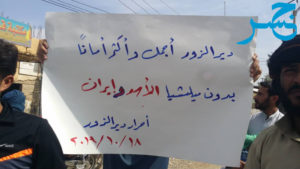 جسر
دير الزور أجمل وأكثر أماناً
بدون ميلشيا الأسد وإيران
أحرار دير الزور
٢٠١٩/١٠/١٨